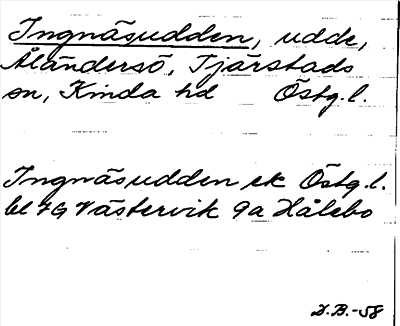 Ingnäsudden, udde,
Åländersö, Tjärstads
sn, Kinda hd Östg.l.
Ingnäsudden ek Östg.l.
bl 7G Västervik 9a Hålebo
D.B.-58